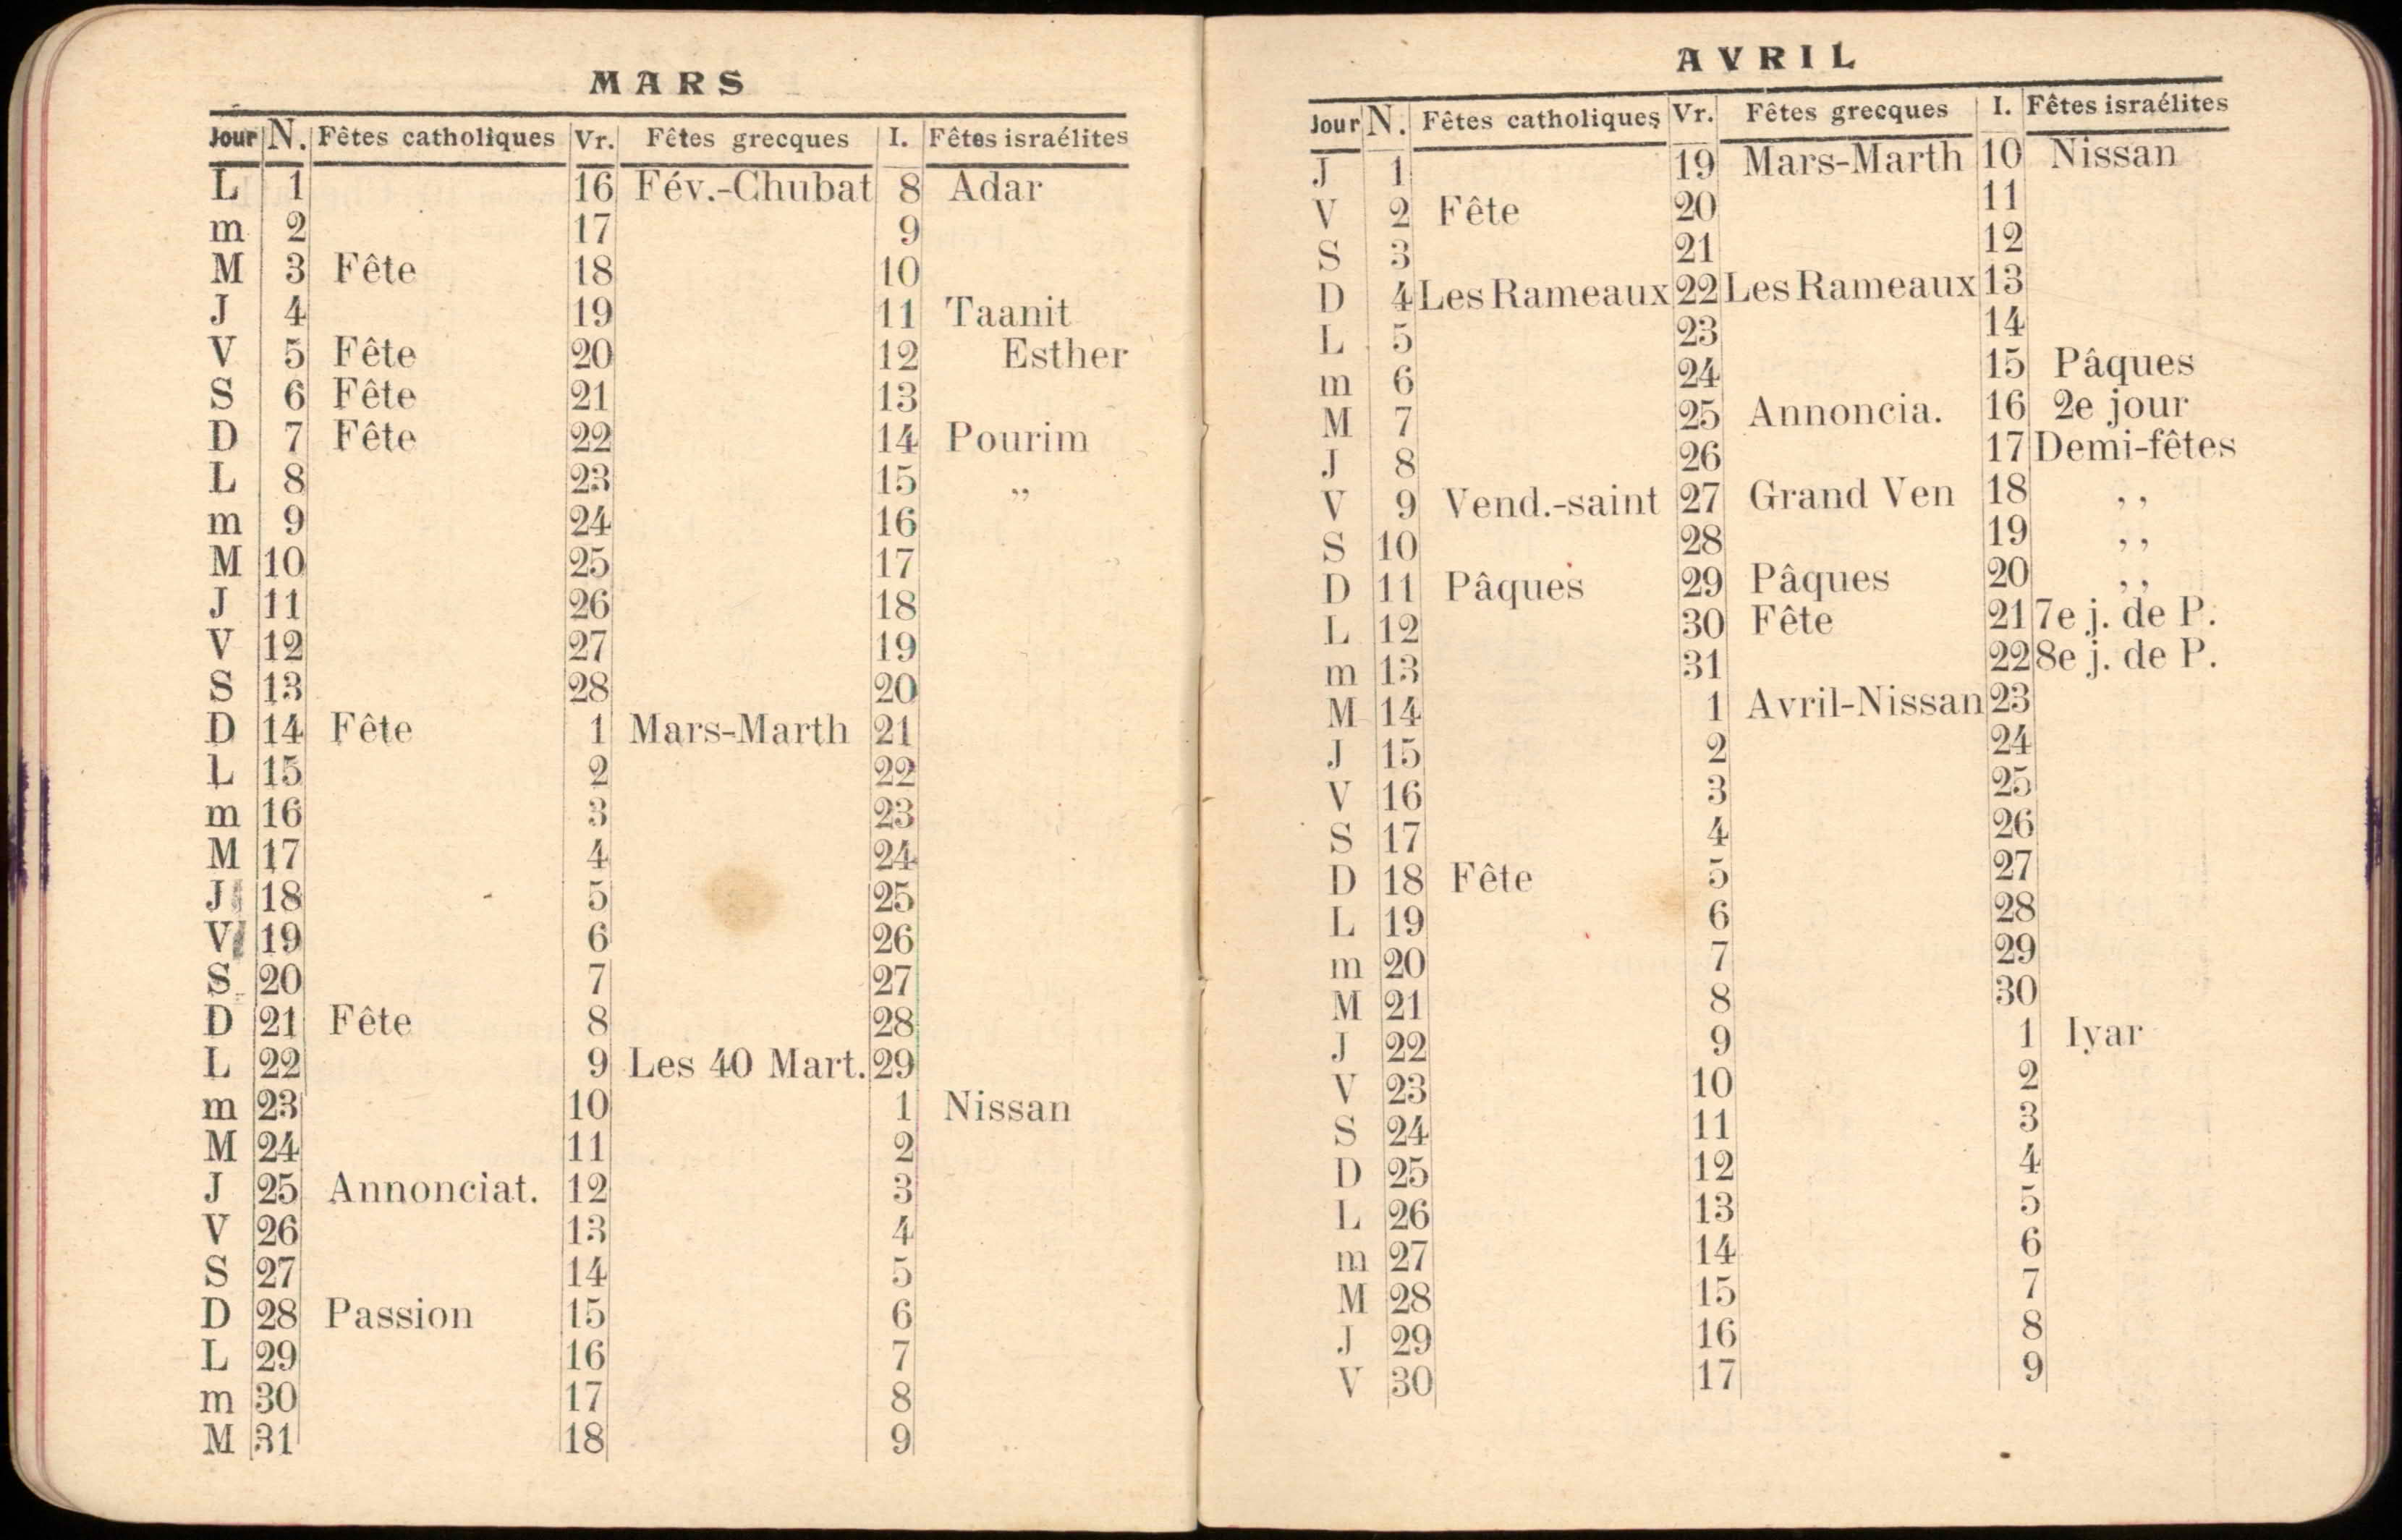 MARS
Jour N. Fêtes catholiques Vr. Fêtes grecques I. Fêtes israélites
L 1 16 Fév.-Chubat 8 Adar
m 2 17 9
M 3 Fête 18 10
J 4 19 11 Taanit
V 5 Fête 20 12 Esther
S 6 Fête 21 13
D 7 Fête 22 14 Pourim
L 8 23 15 ,,
m 9 24 16
M 10 25 17
J 11 26 18
V 12 27 19
S 13 28 20
D 14 Fête 1 Mars-Marth 21
L 15 2 22
m 16 3 23
M 17 4 24
J 18 5 25
V 19 6 26
S 20 7 27
D 21 Fête 8 28
L 22 9 Les 40 Mart. 29
m 23 10 1 Nissan
M 24 11 2
J 25 Annonciat. 12 3
V 26 13 4
S 27 14 5
D 28 Passion 15 6
L 29 16 7
m 30 17 8
M 31 18 9
AVRIL
Jour N. Fêtes catholiques Vr. Fêtes grecques I. Fêtes israélites
J 1 19 Mars-Marth 10 Nissan
V 2 Fête 20 11
S 3 21 12
D 4 Les Rameaux 22 Les Rameaux 13
L 5 23 14
m 6 24 15 Pâques
M 7 25 Annoncia. 16 2e jour
J 8 26 17 Demi-fêtes
V 9 Vend.-saint 27 Grand Ven 18 ,,
S 10 28 19 ,,
D 11 Pâques 29 Pâques 20 ,,
L 12 30 Fête 21 7e j. de P.
m 13 31 22 8e j. de P.
M 14 1 Avril-Nissan 23
J 15 2 24
V 16 3 25
S 17 4 26
D 18 Fête 5 27
L 19 6 28
m 20 7 29
M 21 8 30
J 22 9 1 Iyar
V 23 10 2
S 24 11 3
D 25 12 4
L 26 13 5
m 27 14 6
M 28 15 7
J 29 16 8
V 30 17 9